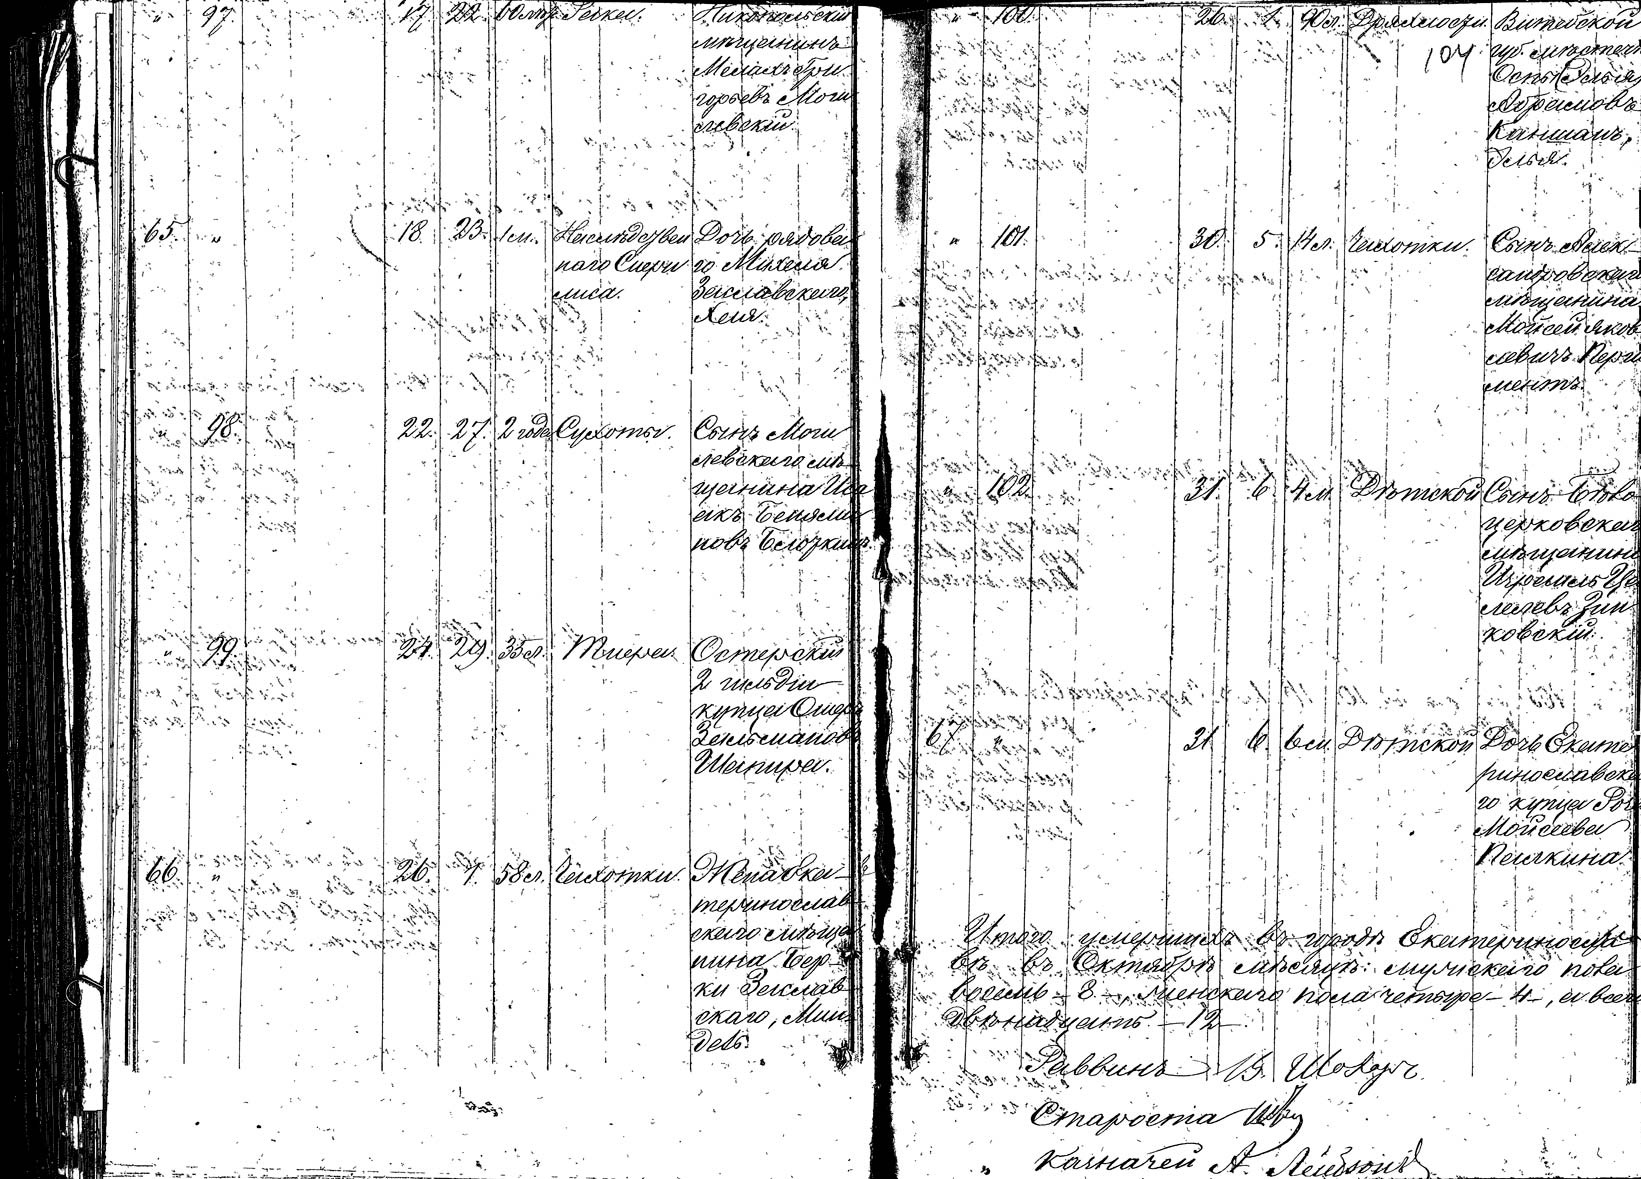 " 97 17. 22. 60 лѣтъ
Никопольскій
мѣщанинъ
Мелахъ Гри
горьевъ Моги
левскій.
65. " 18. 23. 1 м. Наслѣдствен Дочь рядова
наго Сифи го Михеля
лиса. Заславскаго,
Хая.
" 98. 22. 27. 2 года Сухоты. Сынъ Моги
левскаго мѣ
щанина Иса
акъ Беньями
новъ
" 99. 24. 29. 35 л. Тифа Остерскій
2 гильдіи
купца
Зельманов
Шапира.
66. " 26. 1. 58 л. Чахотки. Жена Ека
теринослав
скаго мѣща
нина Бер
ки Заслав
скаго, Мин
дель.
" 100. 26. 1. 90 л. Дряхлости Витебской
104 губ. мѣстеч.
Абрамовъ
Элья.
" 101. 30. 5. 14 л. Чахотки. Сынъ Алек
сандровскаго
мѣщанина
Мойсей Яков
левичъ Перга
ментъ.
" 102. 31. 6. 4 м. Дѣтской Сынъ Бѣло
церковскаго
мѣщанина
Израиль
Зин
ковскій.
67. " 31. 6. 6 м. Дѣтской Дочь Екате
ринославска
го купца
Мойсеева
Пешкина.
Итого умершихъ въ городѣ Екатериносла
вѣ въ Октябрѣ мѣсяцѣ: мужскаго пола
восемь - 8 -, женскаго пола четыре - 4 -, а всего
двѣнадцать - 12 -
Раввинъ В. Шохоръ
Староста
Казначей А. Лейбзонъ